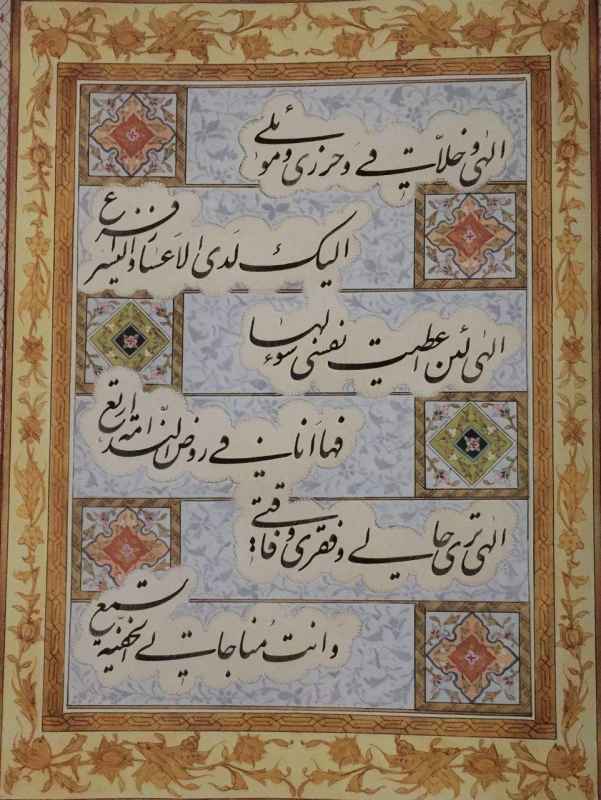 الهی و خلاّقی وَ حرزی و موئلی
الیک لَدی الاَعسار و الیسر افزع
الهی لئن اعطیت نفسی سوءلها
فها اَنا فی روض النّدامة ارتع
الهی تری حالی و فقری و فاقتی
وَ انت مُناجاتی الخفیّة تسمع